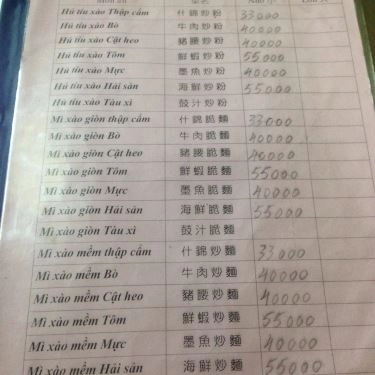 Món ăn 菜名
Hủ tíu xào Thập cẩm 什錦炒粉 33000
Hủ tíu xào Bò 牛肉炒粉 40000
Hủ tíu xào Cật heo 豬腰炒粉 40000
Hủ tíu xào Tôm 鮮蝦炒粉 55000
Hủ tíu xào Mực 墨魚炒粉 40000
Hủ tíu xào Hải sản 海鮮炒粉 55000
Hủ tíu xào Tàu xì 鼓汁炒粉
Mì xào giòn thập cẩm 什錦脆麵 33000
Mì xào giòn Bò 牛肉脆麵 40000
Mì xào giòn Cật heo 豬腰脆麵 40000
Mì xào giòn Tôm 鮮蝦脆麵 55000
Mì xào giòn Mực 墨魚脆麵 40000
Mì xào giòn Hải sản 海鮮脆麵 55000
Mì xào giòn Tàu xì 鼓汁脆麵
Mì xào mềm thập cẩm 什錦炒麵 33000
Mì xào mềm Bò 牛肉炒麵 40000
Mì xào mềm Cật heo 豬腰炒麵 40000
Mì xào mềm Tôm 鮮蝦炒麵 55000
Mì xào mềm Mực 墨魚炒麵 40000
Mì xào mềm Hải sản 海鮮炒麵 55000